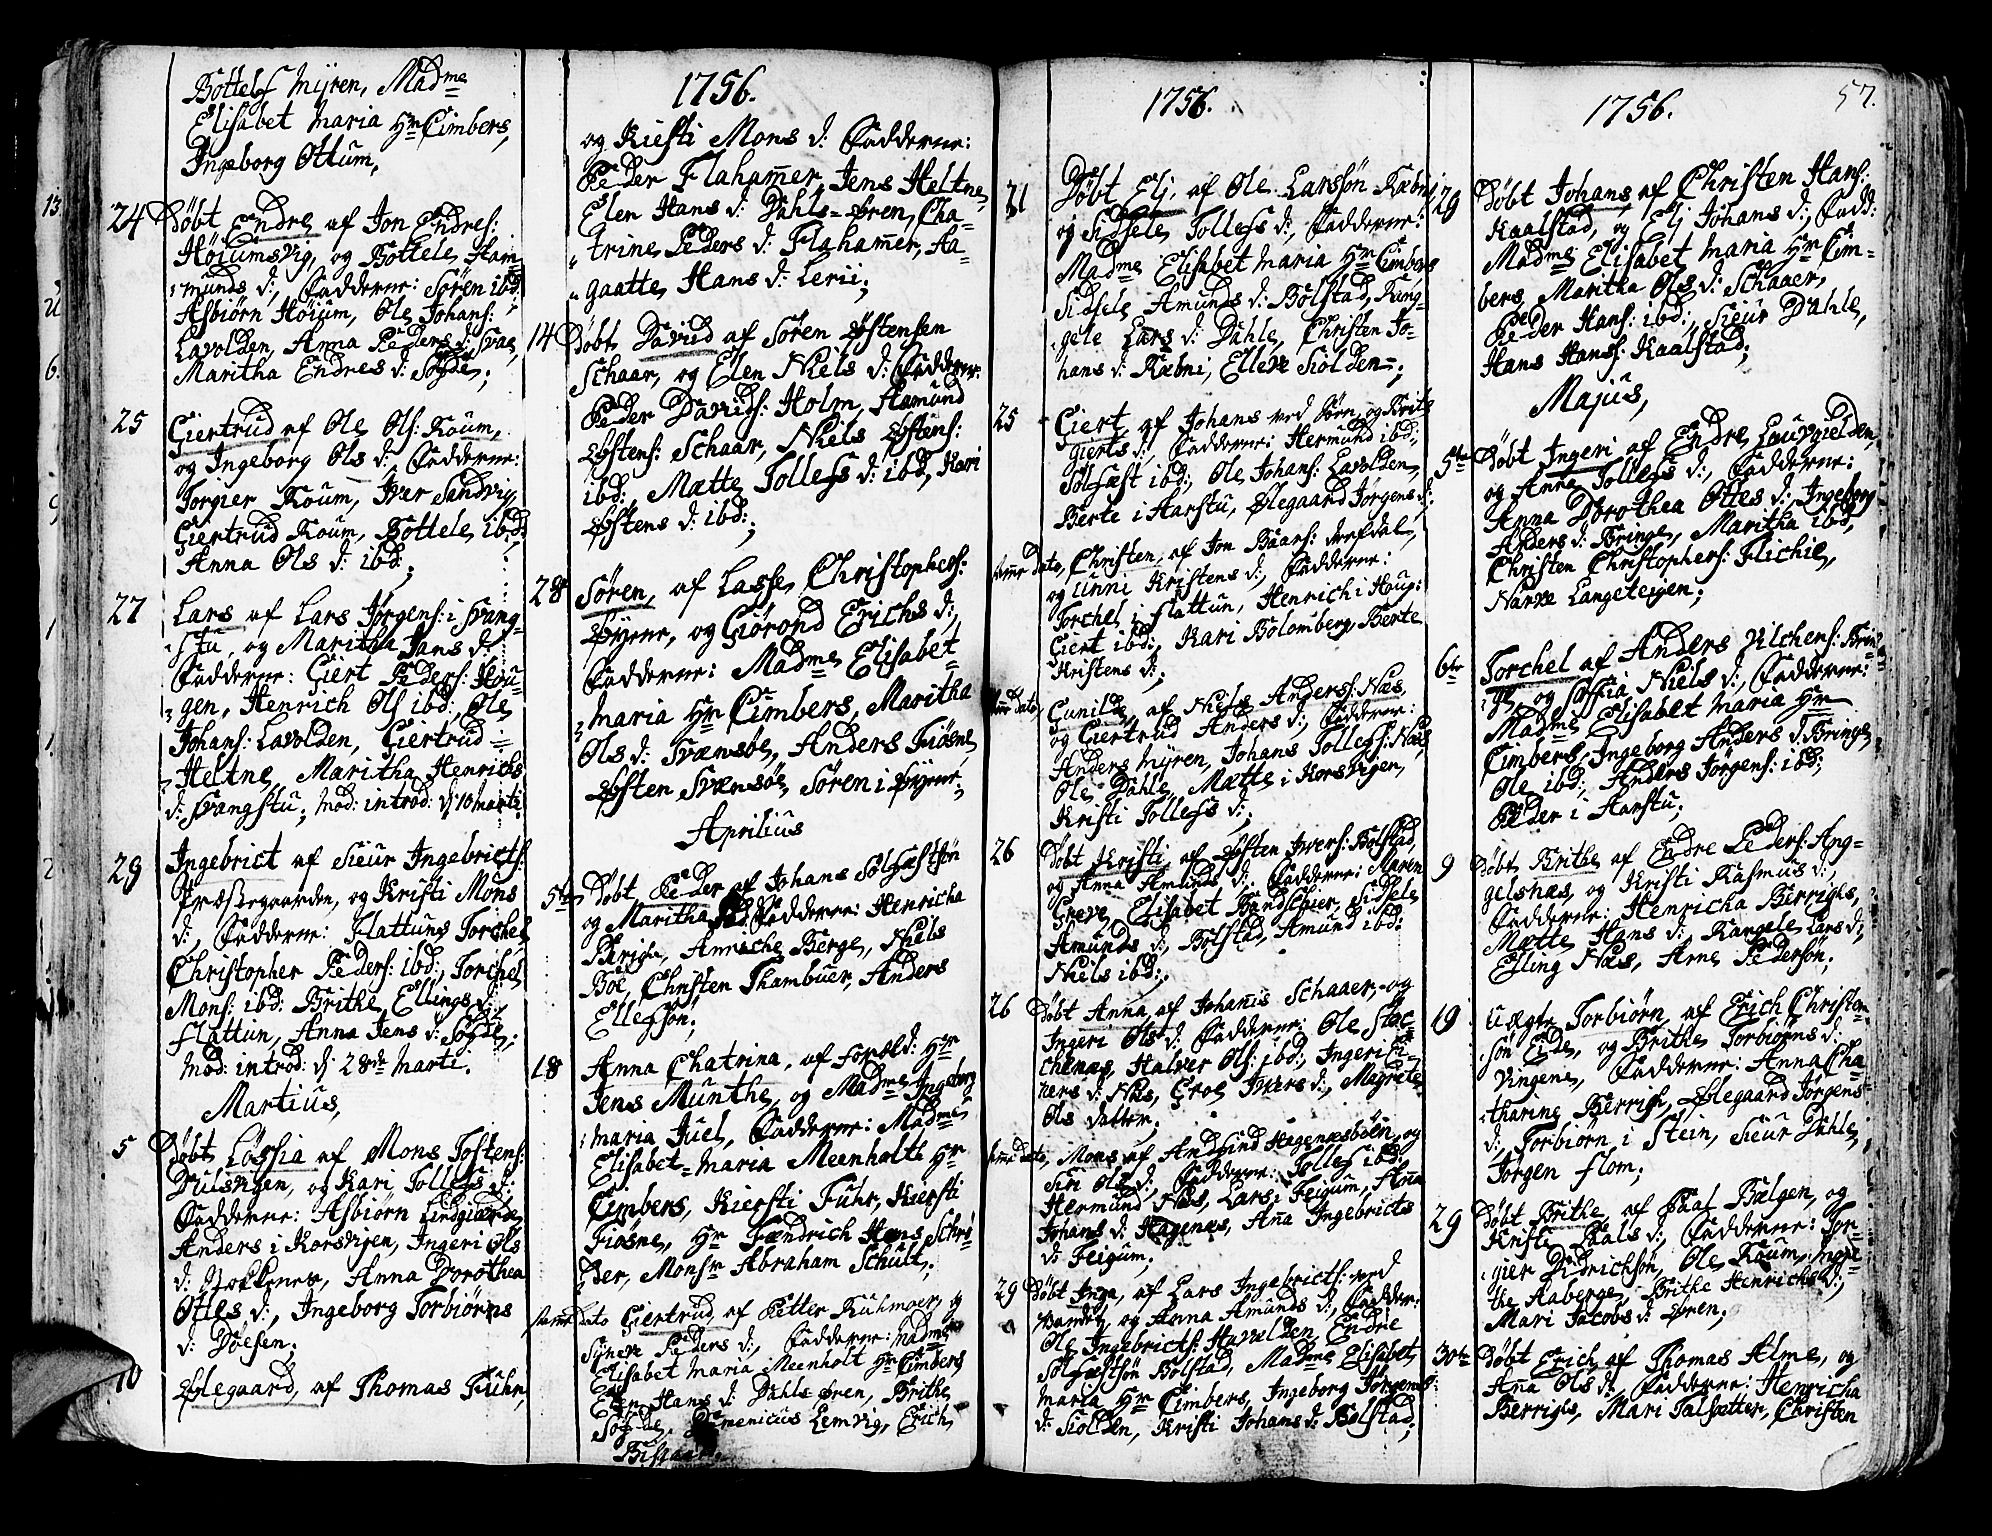 Böttelf Myren, Madme
Elisabet Maria Hr Cimbers,
Ingeborg Ottum,
24 Döbt Endre af Jon Endres:
Höiumsvig, og Bottele Ham-
munds d:, Fadderne: Sören ibd:
Asbiörn Höium, Ole Johans:
Lavolden, Anna Peders d: Svae,
Maritha Endres d: Sogde;
25 Giertrud af Ole Ols: Roum,
og Ingeborg Ols d: Fadderne:
Torgier Roum, Iver Sandvig,
Giertrud Roum, Bottele ibd:
Anna Ols d: ibd:;
27 Lars af Lars Jörgens: i Svang-
stu, og Maritha Hans d:
Fadderne: Giert Peders: Hou-
gen, Henrich Ols ibd:, Ole
Johans: Lavolden, Giertrud i
Heltne, Maritha Henrichs
d: Svangstu; Mod: introd: d: 10 Marti
29 Ingebrict af Sieur Ingebricts:
Præstegaarden, og Kristi Mons
d:, Fadderne: Flattuns Torchel,
Christopher Peders: ibd:, Torchel
Mons: ibd: Brithe Ellings d:
Flattun, Anna Jens d: Sogde;
Mod: introd: d: 28de Marti.
Martius,
5 Döbt Lössia af Mons Tostens:
Dulsvigen, og Kari Tollefs d:
Fadderne: Asbiörn Lindgiærde,
Anders i Korsvigen, Ingeri Ols
d: Nokkenes, Anna Dorothea
Ottes d:, Ingeborg Torbiörns
d: Döesen.
10 Ölegaard, af Thomas Fuhr,
1756.
og Kiesti Mons d: Fadderne:
Peder Flahamer, Jens Heltne,
Elen Hans d: Dahls-ören, Cha-
trine Peders d: Flahamer, Aa-
gaatte Hans d: Lerii;
14 Döbt David af Sören Östensen
Schaar, og Elen Niels d: Fadderne:
Peder Davids: Holm, Hamund
Östens: Schaar, Niels Östens:
ibd:, Mætte Tollefs d: ibd, Kari
Östens d: ibd:;
28 Sören, af Lasse Christophers:
Öyrene, og Giörond Erichs d:,
Fadderne: Madme Elisabet
Maria Hr Cimbers, Maritha
Ols d: Svensöe, Anders Fiösne,
Östen Svensöe, Sören i Öyrene;
Aprilius
5te Döbt Peder af Johans Solfæstsön
og Maritha Fadderne: Henricha
Berige, Anniche Berge, Niels
Böe, Christen Thambuer, Anders
Ellefsön;
18 Anna Chatrina, af Foræld: Hr
Jens Munthe, og Madme Ingeborg
Maria Juel, Fadderne: Madme
Elisabet Maria Meenholt Hr
Cimbers, Kiersti Fuhr, Kiersti
Fiösne, Hr Fændrich Hans Schrö-
der, Monsr Abraham Schult;
Samme dato Giertrud, af Petter Kuhmoer, og
Syneve Peders d:, Fadderne: Madme
Elisabet Maria Meenholt Hr Cimbers
Elen Hans d: Dahls ören, Brithe
Sogde, Domenicus Lemvig, Erich
1756.
21 Döbt Eli, af Ole Larssön Kæbni
og Sidsele Tollefs d:, Fadderne:
Madme Elisabet Maria Hr Cimbers
Sidsele Amunds d: Bolstad, Rang-
gele Lars d: Dahle, Christen Jo-
hans d: Kæbni, Elleve Siolden;
25 Giert, af Johans ved Sörn, og Brite
Gierts d:, Fadderne: Hermund ibd:,
Solfæst ibd:, Ole Johans: Lavolden,
Berte i Harstu, Ölegaard Jörgens d:,
Same Dato, Christen, af Jon Baars: Drefdal,
og Unni Kristens d:, Fadderne:
Torchel i Flattun, Henrich i Haug:
Giert ibd:, Kari Bolomberg, Berte
Kristens d:,
Same Dato, Gunilde, af Niels Anderss: Næs,
og Giertrud Anders d:, Fadderne:
Anders Myren, Johans Tollefs: Næs,
Ole Dahle, Mætte i Korsvigen,
Kristi Tollefs d:,
26 Döbt Kristi, af Östen Ivers: Bolstad,
og Anna Amunds d:, Fadderne: Maren
Greve, Elisabet Handschier, Sidsele
Amunds d:, Bolstad, Amund ibd:
Niels ibd:,
26 Döbt Anna, af Johanis Schaaer, og
Ingeri Ols d:, Fadderne: Ole Stoc-
chenæs, Halver Ols: ibd:, Ingeri Ei-
ners d: Næs, Groe Ivers d:, Magrete
Ols datter.
Same Dato, Mons, af Andsind Hagenæsböen, og
Siri Ols d:, Fadderne: Tollef ibd:,
Hermund Næs, Lars i Feigum, Anna
Johans d: Hagenæs, Anna Ingebricts
d: Feigum,
29 Döbt Inga, af Lars Ingebricts: ved
Vandet, og Anna Amunds d:, Fadder:
Ole Ingebricts: Havelden, Endre
Solfæstsön Bolstad, Madme Elisabet
Maria Hr Cimbers, Ingeborg Jörgens
d: Siolden, Kristi Johans d: Bolstad;
1756.
57.
29 Döbt Johans af Christen Hans:
Kaalstad, og Eli Johans d:, Fadd:
Madme Elisabet Maria Hr Cim-
bers, Maritha Ols d: Schaaer,
Peder Hans: ibd:, Sieur Dahle,
Hans Hans: Kaalstad;
Majus,
5te Döbt Ingeri af Endre Lauvgielden,
og Anna Tollefs d:, Fadderne:
Anna Dorothea Ottes d:, Ingeborg
Anders d: Bringe, Maritha ibd,
Christen Christophers: Flichie,
Narve Langeteigen;
6te Torchel af Anders Vilchens: Brin-
ge, og Soffia Niels d:, Fadderne:
Madme Elisabet Maria Hr
Cimbers, Ingeborg Anders d: Bringe,
Ole ibd:, Anders Jorgens: ibd:,
Peder i Harstu;
9 Döbt Brithe af Endre Peders: Ang-
gelsnæs, og Kristi Rasmus d:,
Fadderne: Henricha Berriges,
Mætte Hans d:, Rangele Lars d:,
Elling Næs, Arne Pedersön;
19 Uægte Torbiörn, af Erich Christen-
sön Eide, og Brithe Torbiörns d:
Vingene, Fadderne: Anna Cha-
tharine Berrige, Ölegaard Jörgens
d:, Torbiörn i Stein, Sieur Dahle,
Jörgen Flom;
29 Döbt Brithe, af Paal Bælgen, og
Kristi Paals d:, Fadderne: Tor-
gier Didrichsön, Ole Roum, Mari-
the Aaberge, Brithe Henrichs d:,
Mari Jacobs d: Ören;
30te Döbt Erich, af Thomas Alme, og
Anna Ols d:, Fadderne: Henricha
Berriges, Mari Talsætter, Christen